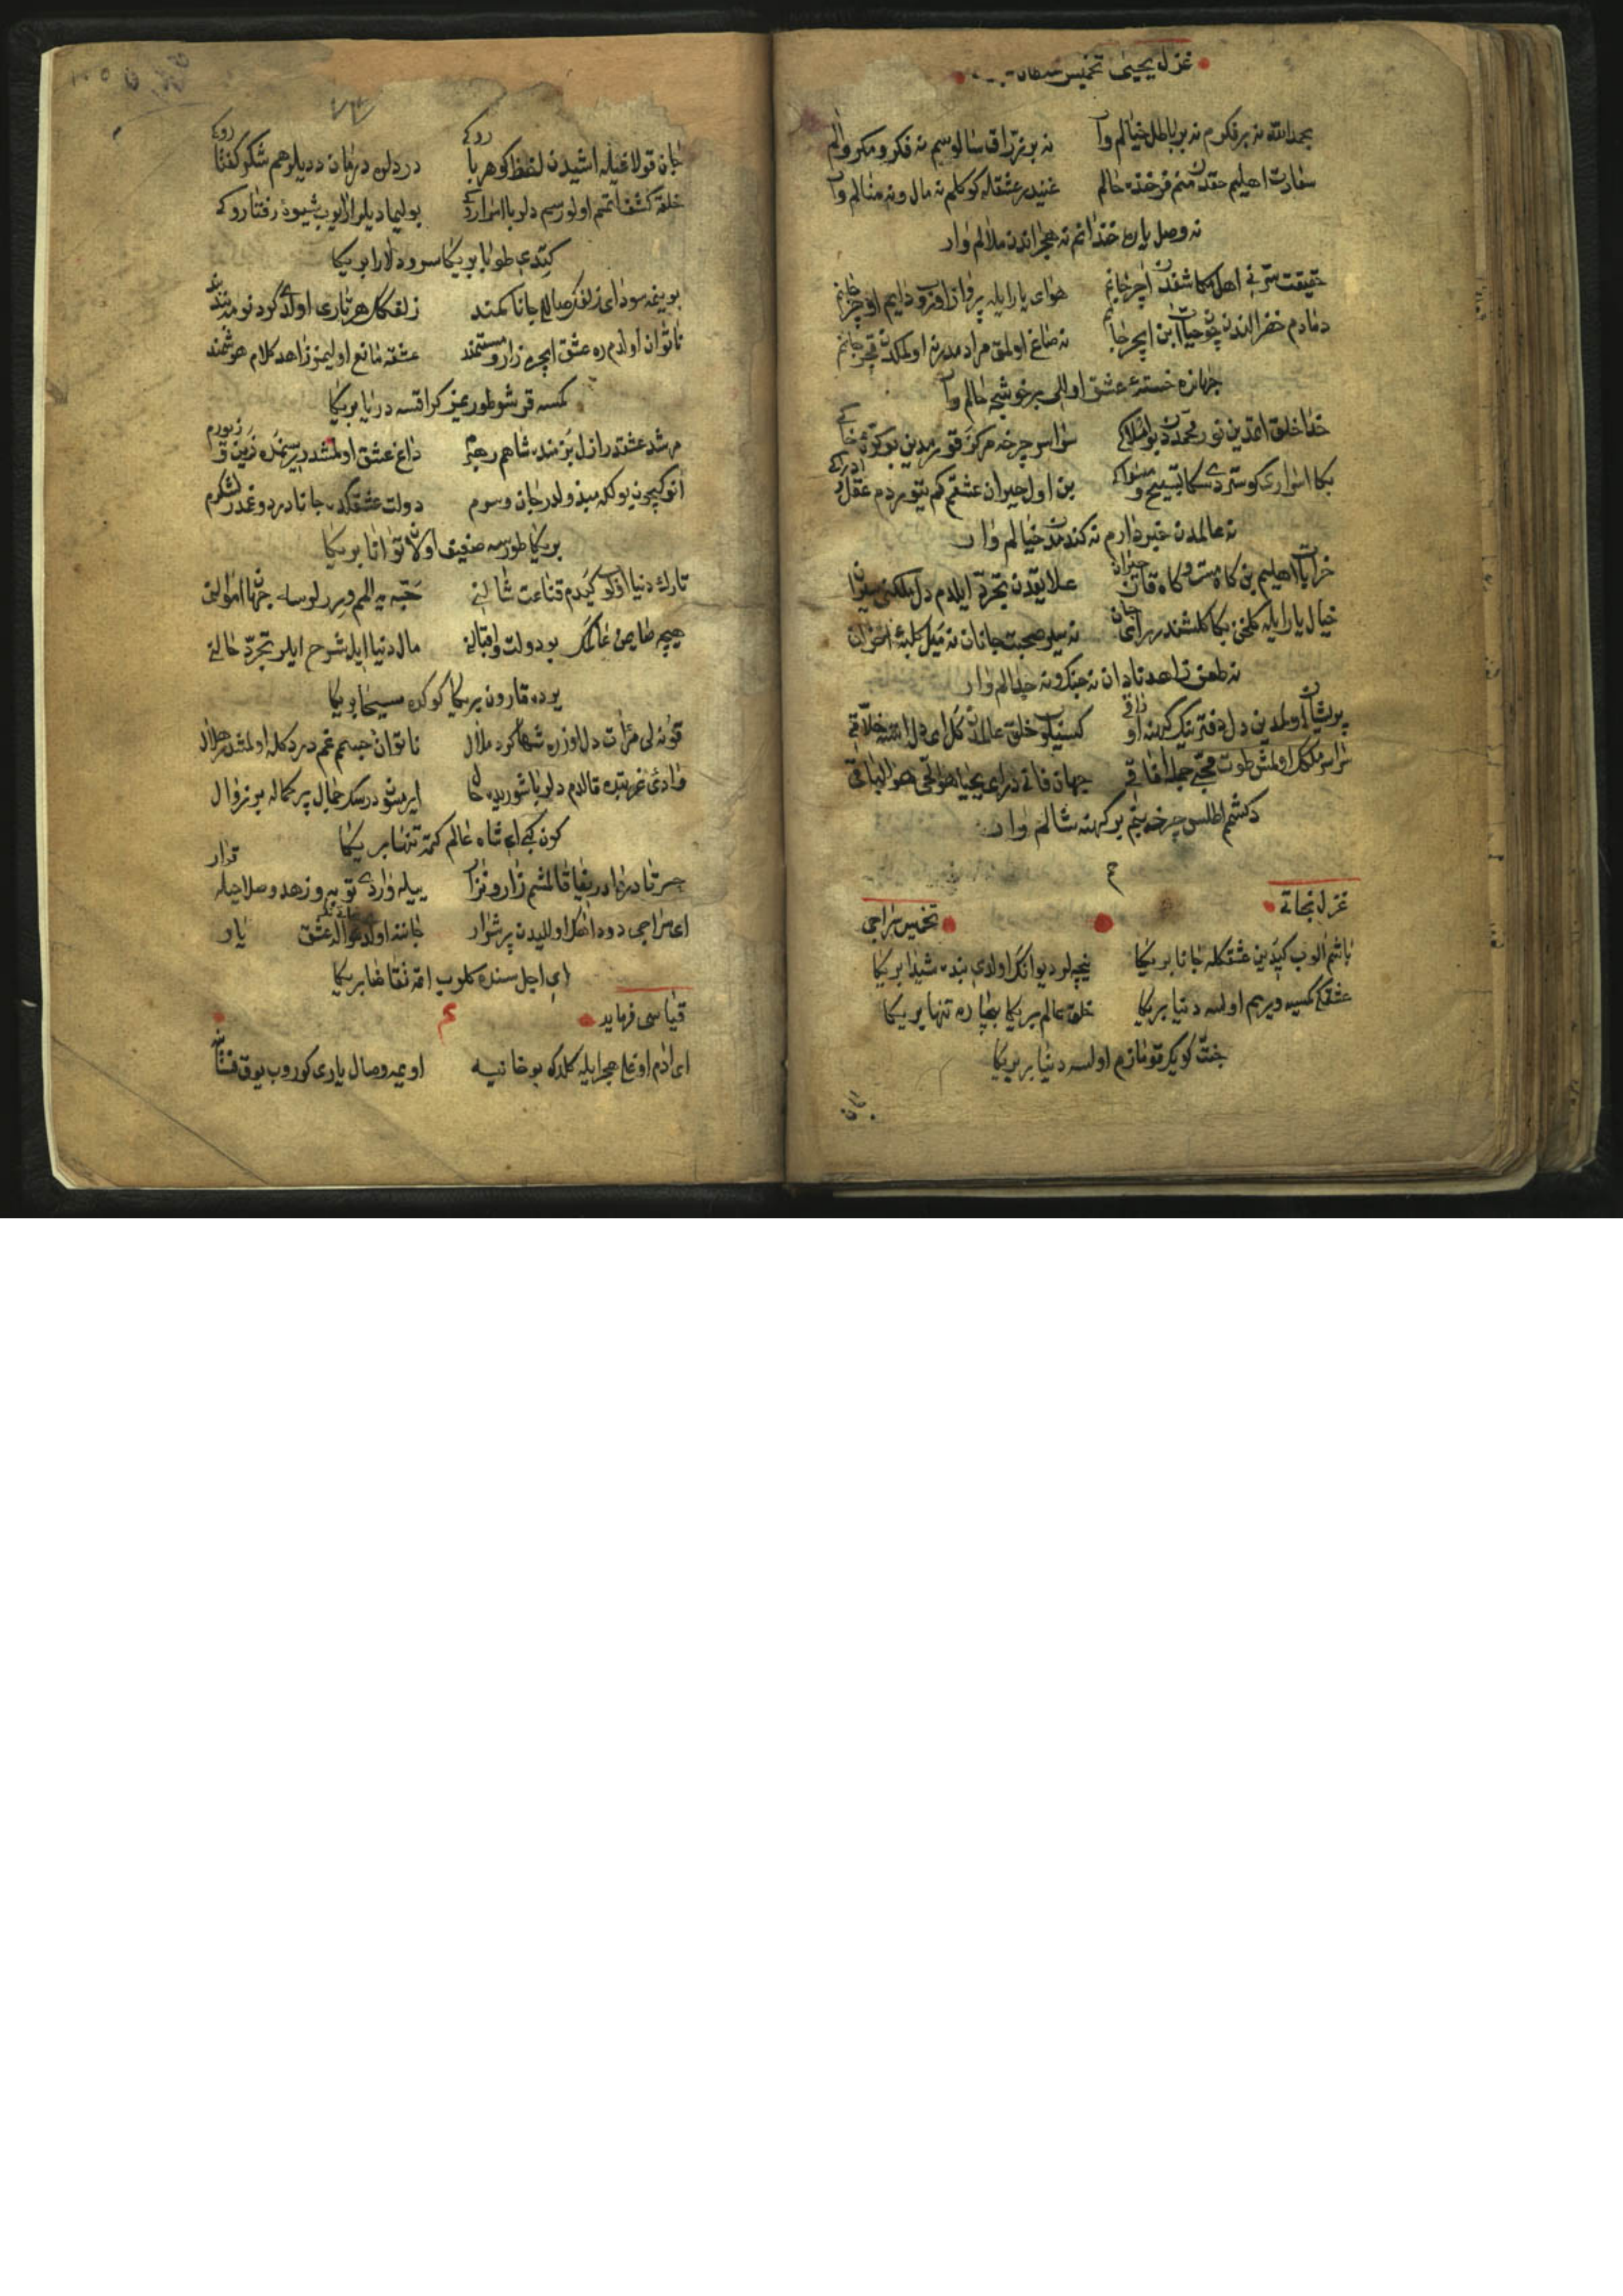 غزل یحیی تخمیس
بحمدالله نه بر فکرم نه بر باطل خیالم وار نه بو نه فکر و مکر و آلم
سعادت اهلیم حقدن منم فرخنده حالم غنیدر عشقله کوکلم نه مال و نه منالم وار
نه وصل یاره خندانم نه هجراندن ملالم وار
حقیقت سرنی اهل مکاشفدن اچر جانم هوای یار ایله پرواز اوروب دایم اوچر جانم
دمادم خضر الندن چون حیات ابن ایچر جانم نه صاغ اولمق مراد مدر نه اولمکدن قچر جانم
جهانده خسته عشق اولالی بر خوشجه حالم وار
خدا خلق اتدین نور محمددن بو افلاکی سراسر چرخه مرکز قورمدین بو کوی خاکی
بکا اسرارک کوستردی سکا تسبیح بن اول حیران عشقم کم یتوردم عقل و ادراکی
نه عالمدن خبردارم نه کندمدن خیالم وار
خرابات اهلیم بن کاه مست و کاه حیران علایقدن تجرد ایلدم دل ملکنی
خیال یار ایله کلخن بکا کلشندر نه میل صحبت جانان نه میل کلبه احزان
نه طعن زاهد نادان نه جنک و نه جدالم وار
پریشان اولمدین دل دفترینک کهنه اوراقی کسیلوب خلق عالمدن کل ای دل ایسته خلاقی
سراسر ملکک اولمش طوت محبی جمله آفاقی جهان فانی درای یحیی هوالحی هوالباقی
دکشمم اطلس چرخه بنم بر کهنه شالم وار
م
غزل نجاتی تخمیس سراجی
باشم الوب کیدین عشقکله جانا بر یکا نیچه لر دیوانک اولدی بنده شیدا بر یکا
عشقکی کمسیه ویرمم اولسه دنیا بر یکا خلق عالم بر یکا بیچاره تنها بر یکا
جنت کویک قومازم اولسه دنیا بر یکا
جان قولاغیله اشیدن لفظ کوهر بارکی درد دلن درمان ددیلر هم شکر کفتارکی
خلقه کشف اتمم اولورسم دلربا اسرارکی بولیمادیلر ارایوب شیوه رفتارکی
کتدی طوبا بر یکا سرو دلارا بر یکا
بوینمه سودای زلفک صالالی جانا کمند زلفکک هر تاری اولدی کردنومه بند
ناتوان اولدم ره عشق ایچره زار و مستمند عشقه مانع اولیمز زاهد کلام هوشمند
کمسه قرشو طوریمز کر اقسه دریا بر یکا
مرشد عشقدر ازل بزمنده شاهم رهبرم داغ عشق اولمشدر سینمده
انوکیچون یولکه مبذولدر جان و سرم دولت عشقکده جانا درد و غمدر لشکرم
بر یکا طورسه ضعیف اولان توانا بر یکا
تارک دنیا اولوب کیدم قناعت شالنی حبه یه المم ویررلرسه جهان اموالنی
هیچه صایمن عالمک بو دولت و اقبالنی مال دنیا ایله شرح ایلر تجرد حالنی
یرده قارون بر یکا کوکده مسیحا بر یکا
قونه لی مرآت دل اوزره شها کرد ملال ناتوان جسمم غم دردکله اولمشدر هلال
وادی غربتده قالدم دلربا شوریده حال ایرمسون درسک جمال پر کماله بر زوال
کون کبی ای شاه عالم کتمه تنها بر یکا
حسرتا دردا دریغا قالمشم زار و نزار بیله واردی توبه و زهد و صلاحیله قرار
ای سراجی دود اهک اولالیدن پر شرار جاننه اولدی حواله عشق یار
ای اجل سنده کلوب اتمه تقاضا بر یکا
قیاسی فرماید م
ای ادم اوغلی هجرایله کلدک بو خانیه اویمه وصال یاری کوروب بوق